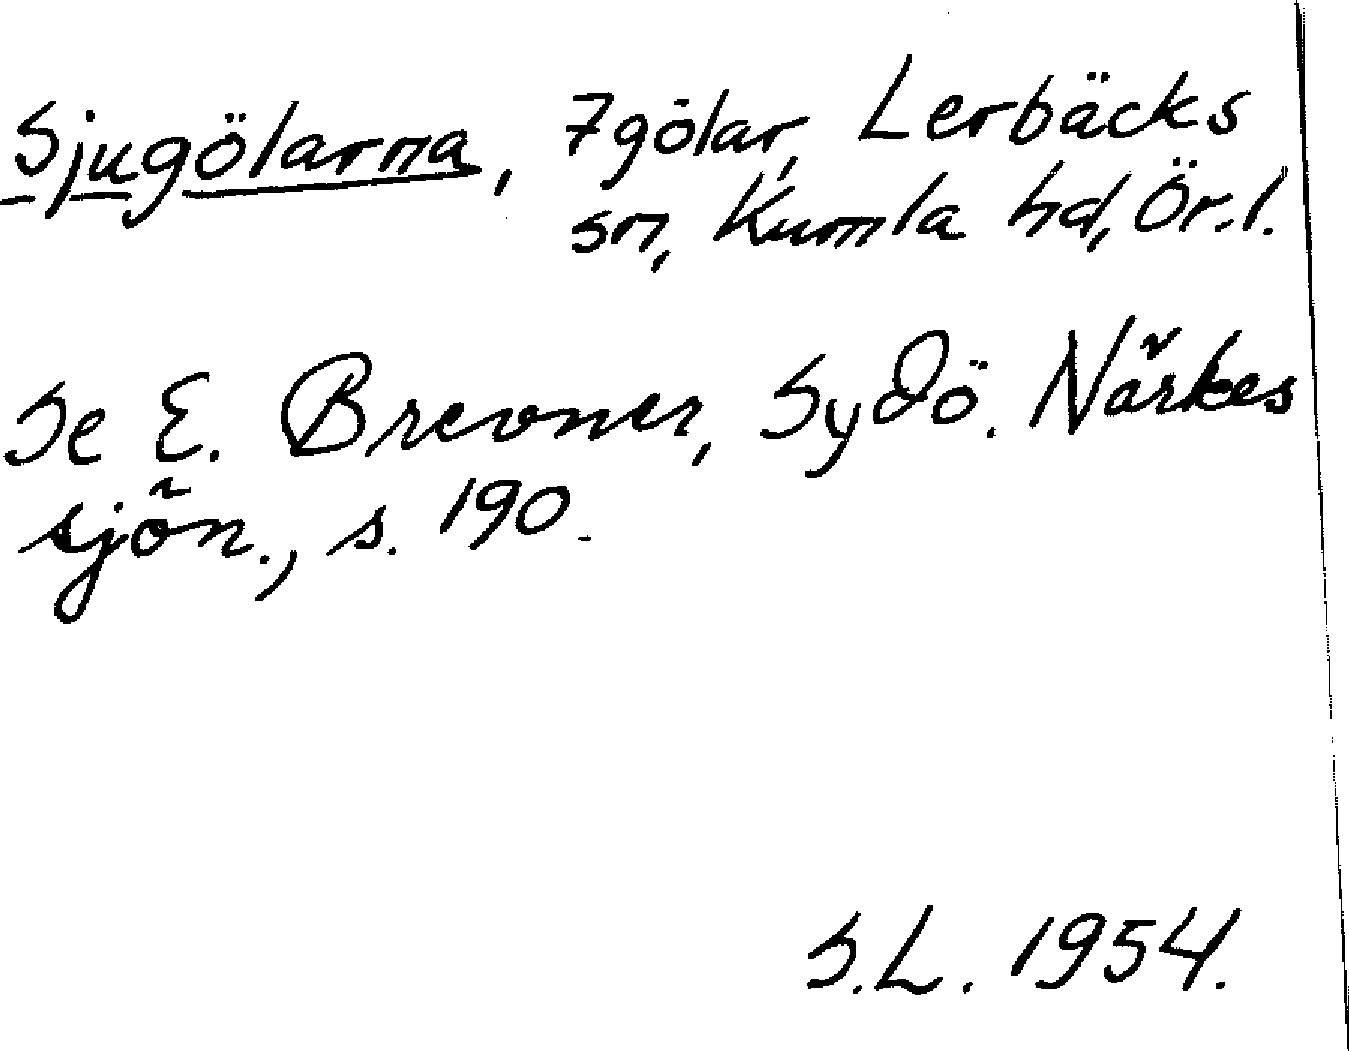 Sjugölarna, 7 gölar, Lerbäcks
sn, Kumla hd, Ör. l.
Se E. Brevner, Sydö. Närkes
sjön., s. 190.
S.L. 1954.